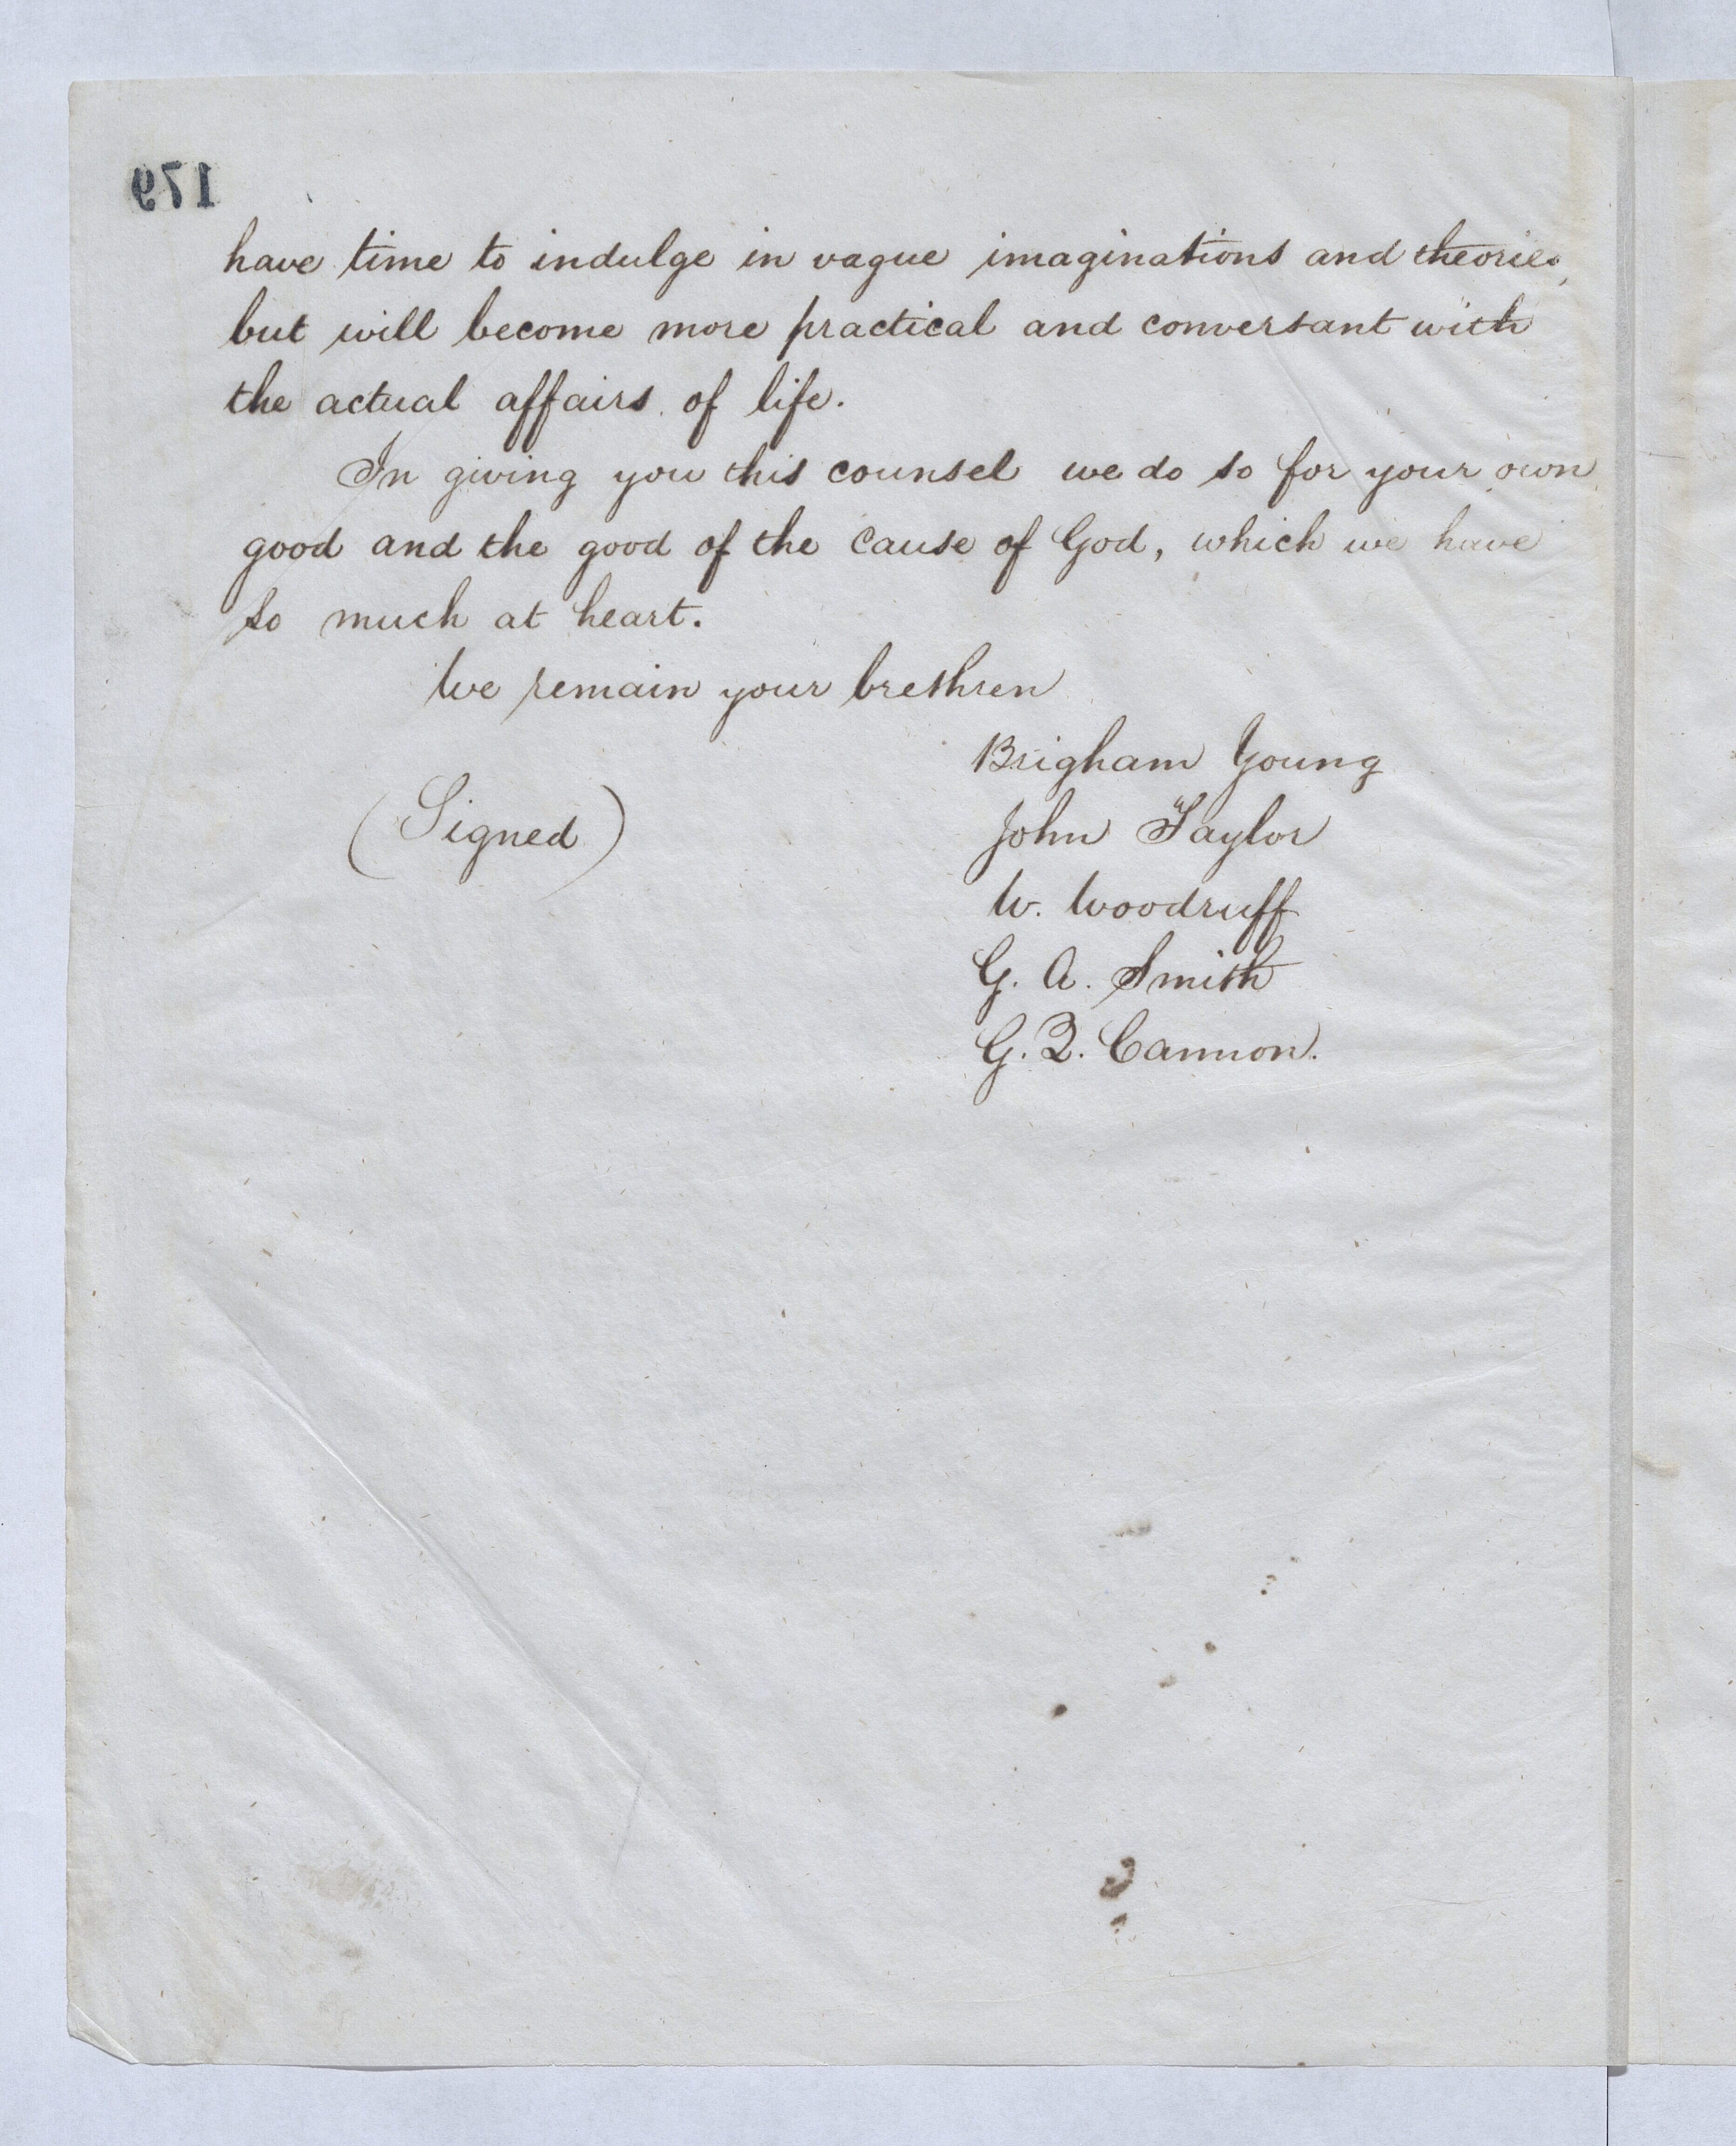 179
have time to indulge in vague imaginations and theories,
but will become more practical and conversant with
the actual affairs of life.
In giving you this counsel we do so for your own
good and the good of the cause of God, which we have
so much at heart.
We remain your brethren
Brigham Young
(Signed) John Taylor
W. Woodruff
G. A. Smith
G. Q. Cannon.